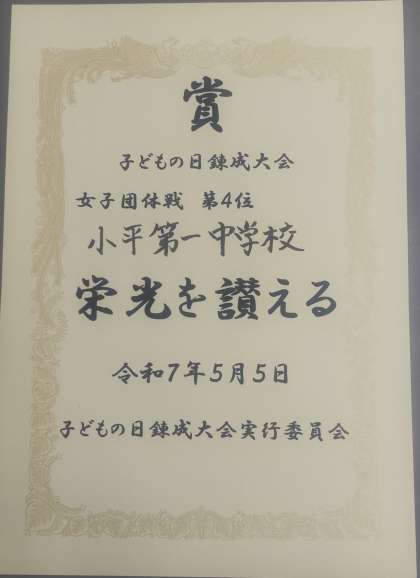 賞
子どもの日錬成大会
女子団体戦 第4位
小平第一中学校
栄光を讃える
令和7年5月5日
子どもの日錬成大会実行委員会